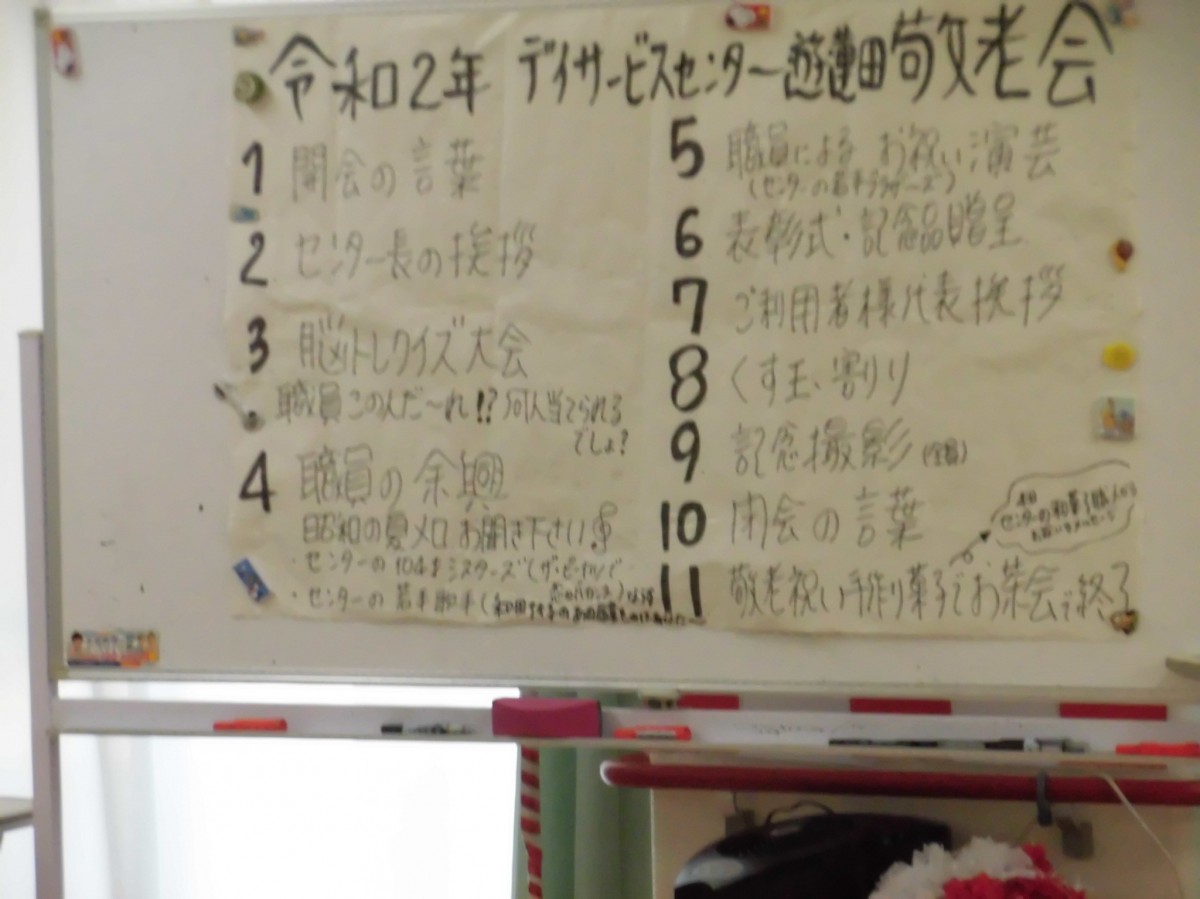 令和2年 デイサービスセンター遊蓮田敬老会
1 開会の言葉
2 センター長の挨拶
3 脳トレクイズ大会
職員この人だ〜れ!? 何人当てられる
でしょ?
4 職員の余興
昭和の夏メロお聞き下さい
・センターの104才シスターズ(ザ・ピーナッツで
恋のバカンス)
・センターの若手歌手(和田
5 職員による お祝い演芸
(センターの若手ブラザーズ)
6 表彰式・記念品贈呈
7 ご利用者様代表挨拶
8 くす玉割り
9 記念撮影(全員)
10 閉会の言葉
センターの和菓子職人から
お祝いをメッセージ
11 敬老祝い手作り菓子でお茶会で終了